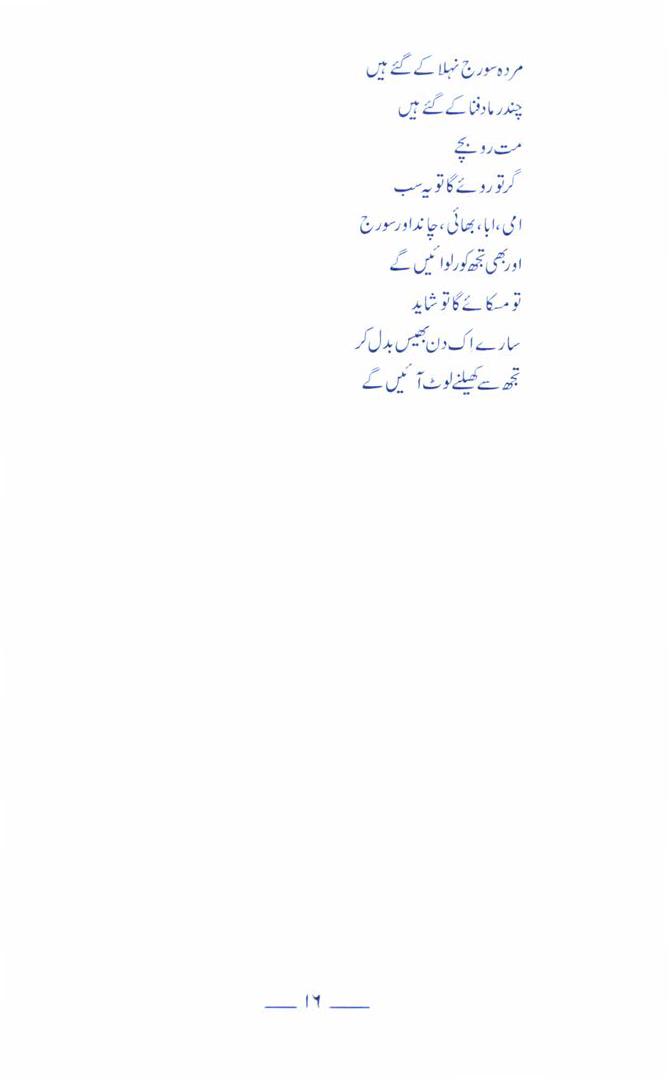 مردہ سورج نہلا کے گئے ہیں
چندر ما دفنا کے گئے ہیں
مت رو بچے
گر تو روئے گا تو یہ سب
امی، ابا، بھائی، چاند اور سورج
اور بھی تجھ کو رلوائیں گے
تو مسکائے گا تو شاید
سارے اِک دن بھیس بدل کر
تجھ سے کھیلنے لوٹ آئیں گے
۱۶